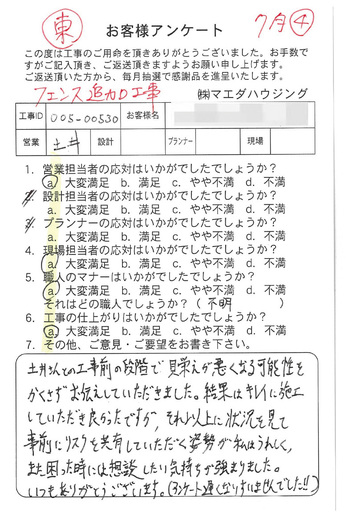 東
お客様アンケート
7月④
この度は工事のご用命を頂きありがとうございました。お手数で
すがご記入頂き、ご返送頂きますようお願い申し上げます。
ご返送頂いた方から、毎月抽選で感謝品を進呈いたします。
フェンス追加工事
㈱マエダハウジング
工事ID 005-00530 お客様名
営業 土井 設計 プランナー 現場
1. 営業担当者の応対はいかがでしたでしょうか?
a. 大変満足 b. 満足 c. やや不満 d. 不満
2. 設計担当者の応対はいかがでしたでしょうか?
a. 大変満足 b. 満足 c. やや不満 d. 不満
3. プランナーの応対はいかがでしたでしょうか?
a. 大変満足 b. 満足 c. やや不満 d. 不満
4. 現場担当者の応対はいかがでしたでしょうか?
a. 大変満足 b. 満足 c. やや不満 d. 不満
5. 職人のマナーはいかがでしたでしょうか?
a. 大変満足 b. 満足 c. やや不満 d. 不満
それはどの職人でしょうか?( 不明 )
6. 工事の仕上がりはいかがでしたでしょうか?
a. 大変満足 b. 満足 c. やや不満 d. 不満
7. その他、ご意見・ご要望をお書き下さい。
土井さんとの工事前の段階で見栄えが悪くなる可能性を
かくさずお伝えしていただきました。結果はキレイに施工
していただき良かったですが、それ以上に状況を見て
事前にリスクを共有していただく姿勢が私はうれしく、
また困った時には相談したい気持ちが強まりました。
いつもありがとうございます。(アンケート遅くなりすいませんでした!!)